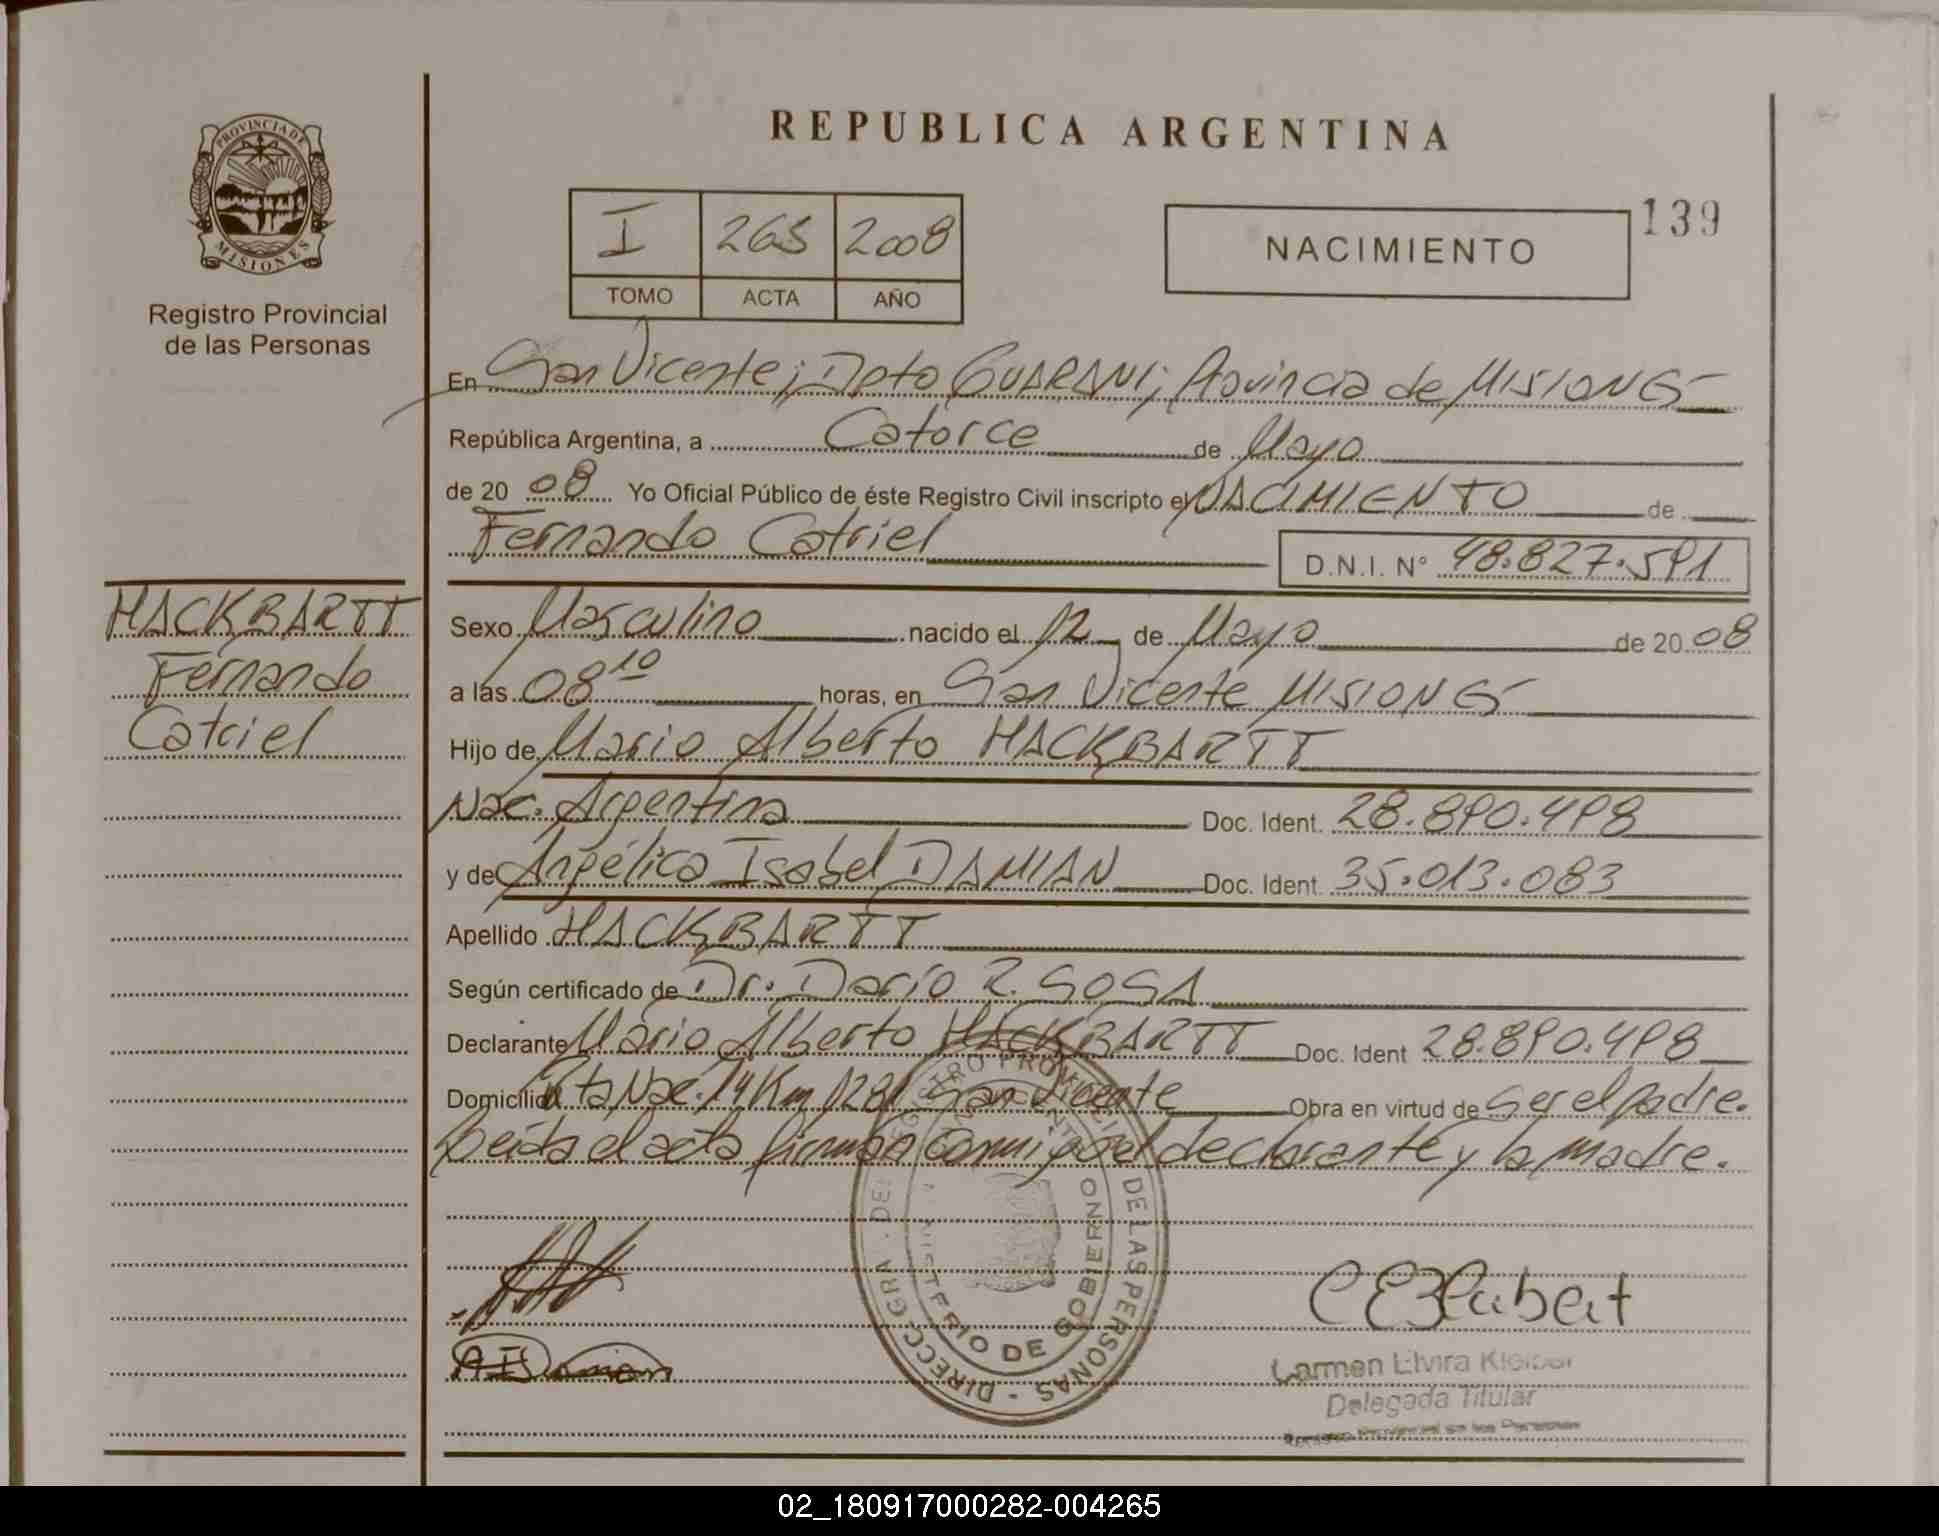 REPUBLICA ARGENTINA
PROVINCIA DE
MISIONES
Registro Provincial
de las Personas
I 265 2008
TOMO ACTA AÑO
NACIMIENTO
139
En San Vicente; Dpto GUARANI; Provincia de MISIONES
República Argentina, a Catorce de Mayo
de 2008 Yo Oficial Público de éste Registro Civil inscripto el NACIMIENTO de
Fernando Catriel D.N.I. N° 48.827.591
HACKBARTT
Fernando
Catriel
Sexo Masculino nacido el 12 de Mayo de 2008
a las 08 10 horas, en San Vicente MISIONES
Hijo de Mario Alberto HACKBARTT
Nac. Argentina Doc. Ident. 28.890.498
y de Angélica Isabel DAMIAN Doc. Ident. 35.013.083
Apellido HACKBARTT
Según certificado de Dr. Darío R. SOSA
Declarante Mario Alberto HACKBARTT Doc. Ident 28.890.498
Domicilio Rta Nac. 14 Km 1281 San Vicente Obra en virtud de Ser el padre.
Leída el acta firman conmigo el declarante y la madre.
DIRECC GRA. DEL REGISTRO PROVINCIAL DE LAS PERSONAS
MINISTERIO DE GOBIERNO
A I Damian
Carmen Elvira Kleiber
Delegada Titular
Registro Provincial de las Personas
02_180917000282-004265